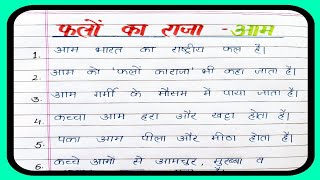 फलों का राजा - आम
1. आम भारत का राष्ट्रीय फल है।
2. आम को 'फलों का राजा' भी कहा जाता है।
3. आम गर्मी के मौसम में पाया जाता है।
4. कच्चा आम हरा और खट्टा होता है।
5. पका आम पीला और मीठा होता है।
6. कच्चे आमों से आमचूर, मुरब्बा व